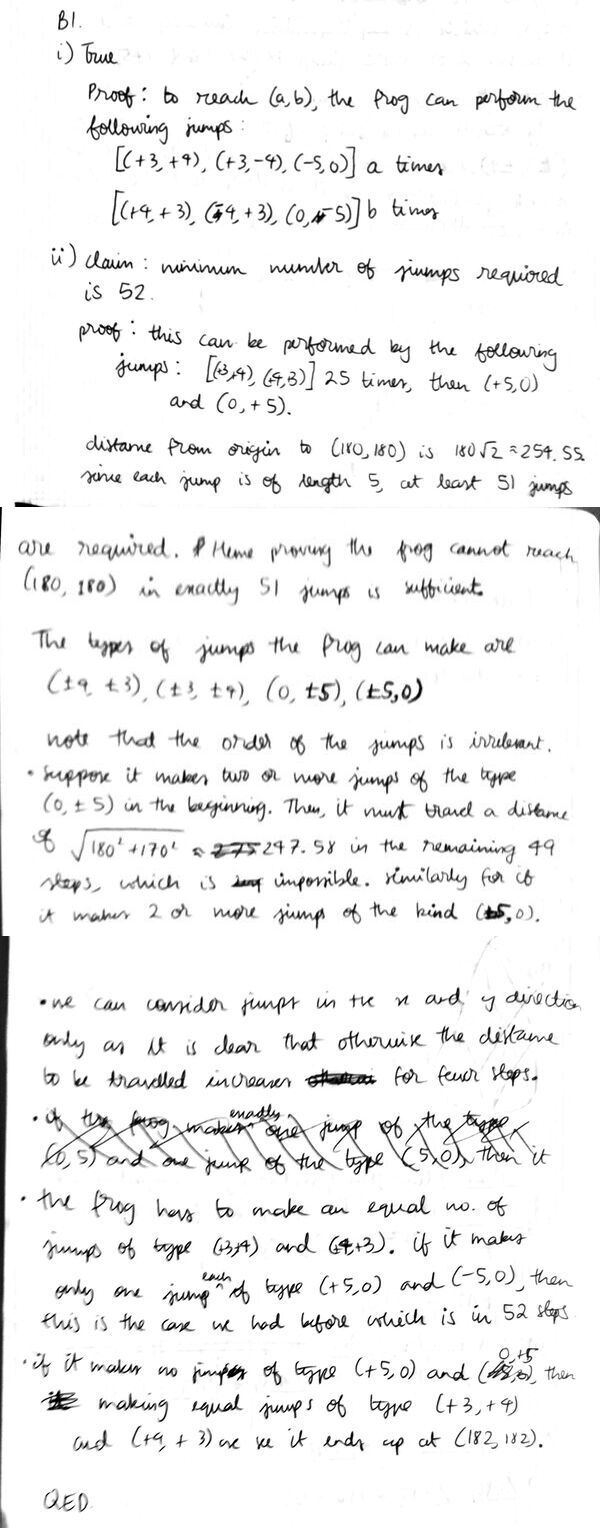 B1.
i) True
Proof: to reach (a,b), the frog can perform the
following jumps:
[(+3,+4), (+3,-4), (-5,0)] a times
[(+4,+3), (-4,+3), (0,-5)] b times
ii) claim: minimum number of jumps required
is 52.
proof: this can be performed by the following
jumps: [(+3,+4), (+4,+3)] 25 times, then (+5,0)
and (0,+5).
distance from origin to (180,180) is 180√2 ≈ 254.55
since each jump is of length 5, at least 51 jumps
are required. Hence proving the frog cannot reach
(180, 180) in exactly 51 jumps is sufficient.
The types of jumps the frog can make are
(±4, ±3), (±3, ±4), (0, ±5), (±5,0)
note that the order of the jumps is irrelevant.
• suppose it makes two or more jumps of the type
(0, ±5) in the beginning. Then, it must travel a distance
of √180²+170² ≈ 247.58 in the remaining 49
steps, which is impossible. similarly for if
it makes 2 or more jumps of the kind (±5,0).
• we can consider jumps in +ve x and y direction
only as it is clear that otherwise the distance
to be travelled increases for fewer steps.
• if the frog makes exactly one jump of the type
(0,5) and one jump of the type (5,0), then it
• the frog has to make an equal no. of
jumps of type (+3,+4) and (+4,+3). if it makes
only one jump each of type (+5,0) and (-5,0), then
this is the case we had before which is in 52 steps
• if it makes no jumps of type (+5,0) and (0,+5), then
making equal jumps of type (+3,+4)
and (+4,+3) it ends up at (182,182).
QED